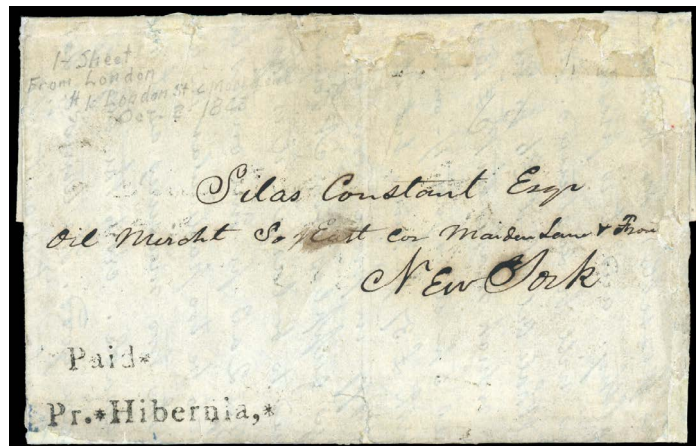 1 Sheet
From London
London St
Dec 2 1823
Silas Constant Esqr
Oil Mercht So East cor Maiden Lane & Fron
New York
Paid*
Pr.*Hibernia,*